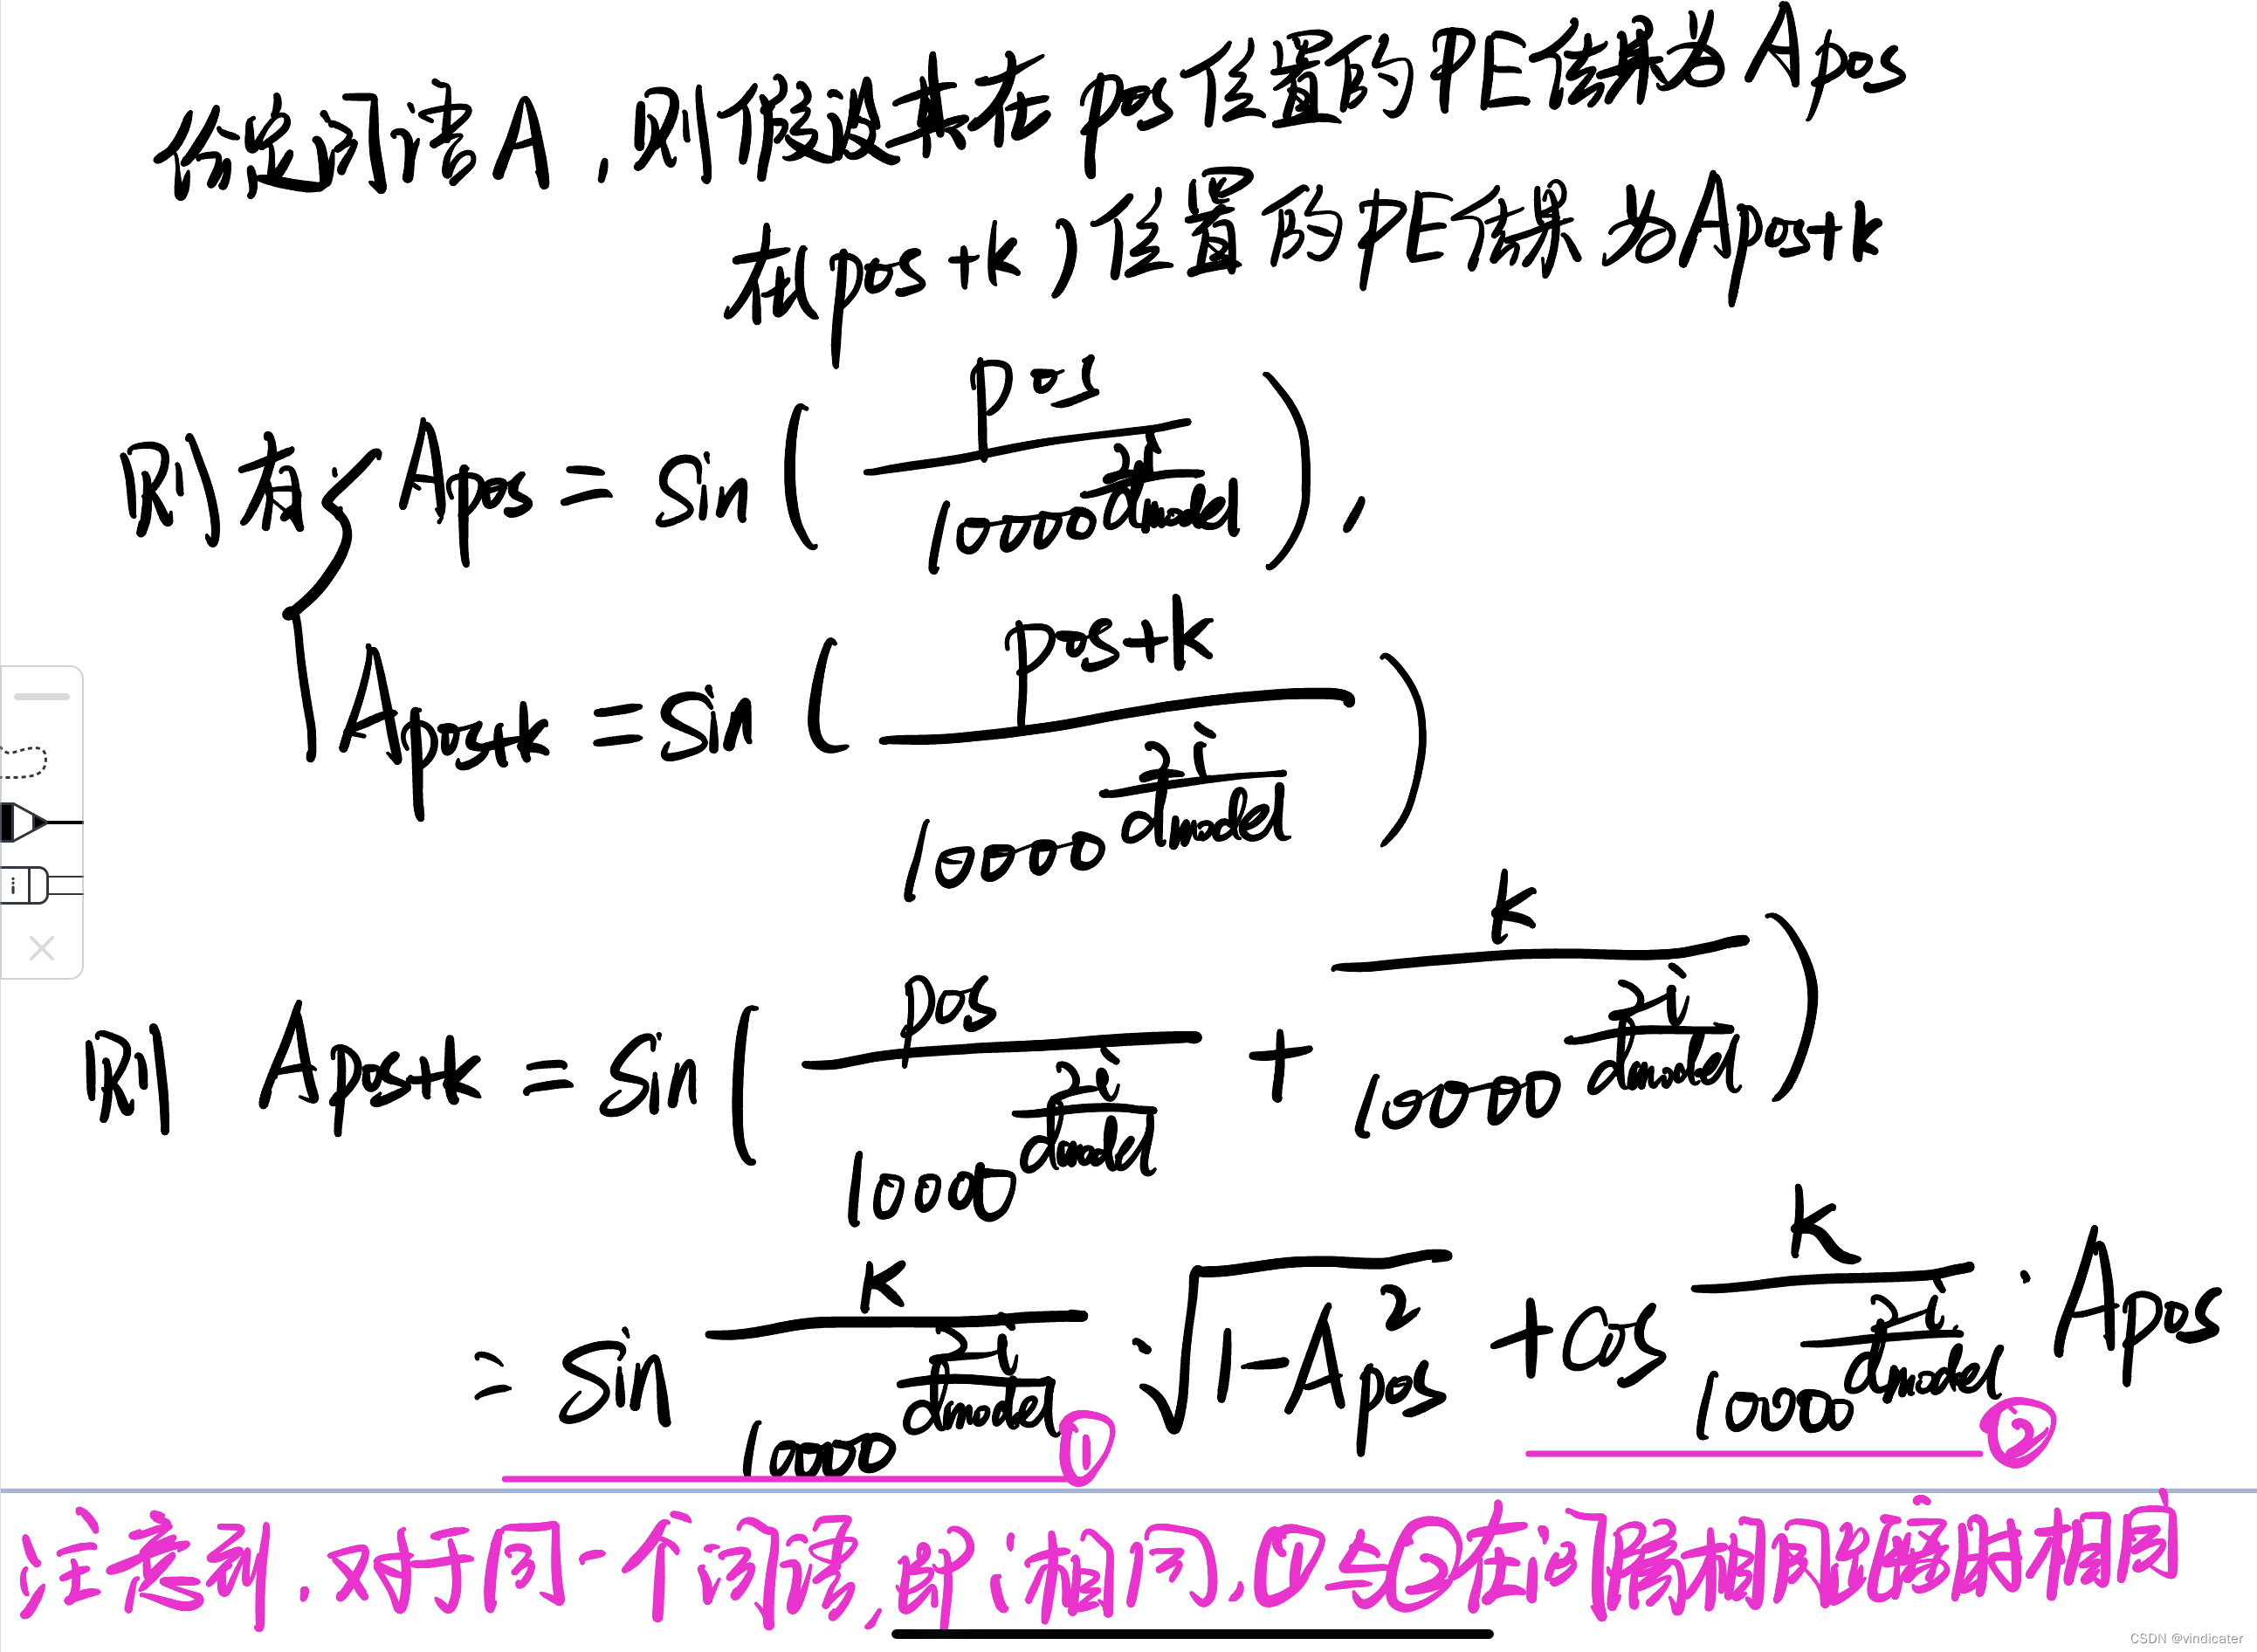 给定词语A,则假设其在pos位置的PE结果为Apos
在(pos+k)位置的PE结果为Apos+k
则有{Apos=sin(pos/10000^(2i/dmodel)),
Apos+k=sin(pos+k/10000^(2i/dmodel))
则 Apos+k=sin(pos/10000^(2i/dmodel)+k/10000^(2i/dmodel))
=sin k/10000^(2i/dmodel)·√(1-Apos²)+cos k/10000^(2i/dmodel)·Apos
① ②
注意到:对于同一个词语,即i相同,①与②在间隔相同距离时相同
CSDN @vindicater